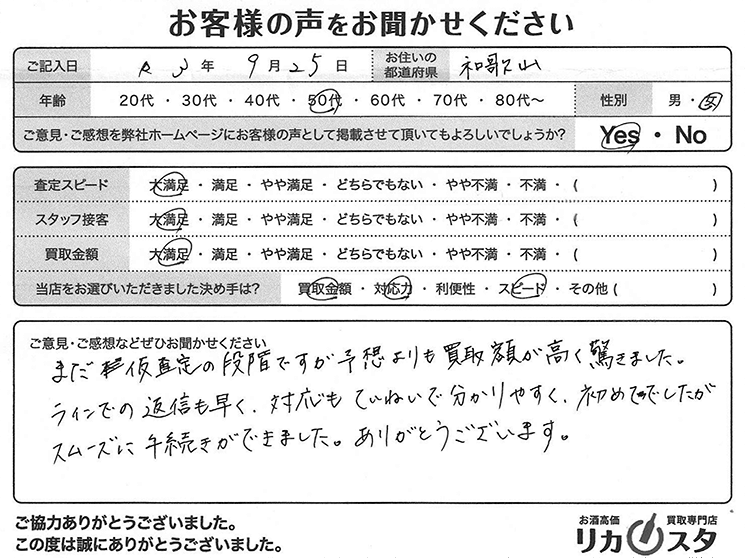 お客様の声をお聞かせください
ご記入日 R 3 年 9 月 25 日 お住いの都道府県 和歌山
年齢 20代 ・ 30代 ・ 40代 ・ 50代 ・ 60代 ・ 70代 ・ 80代～ 性別 男 ・ 女
ご意見・ご感想を弊社ホームページにお客様の声として掲載させて頂いてもよろしいでしょうか? Yes ・ No
査定スピード 大満足 ・ 満足 ・ やや満足 ・ どちらでもない ・ やや不満 ・ 不満 ・ ( )
スタッフ接客 大満足 ・ 満足 ・ やや満足 ・ どちらでもない ・ やや不満 ・ 不満 ・ ( )
買取金額 大満足 ・ 満足 ・ やや満足 ・ どちらでもない ・ やや不満 ・ 不満 ・ ( )
当店をお選びいただきました決め手は? 買取金額 ・ 対応力 ・ 利便性 ・ スピード ・ その他 ( )
ご意見・ご感想などぜひお聞かせください
まだ仮査定の段階ですが予想よりも買取額が高く驚きました。
ラインでの返信も早く、対応もていねいで分かりやすく、初めてでしたが
スムーズに手続きができました。ありがとうございます。
ご協力ありがとうございました。
この度は誠にありがとうございました。
お酒高価 買取専門店
リカスタ